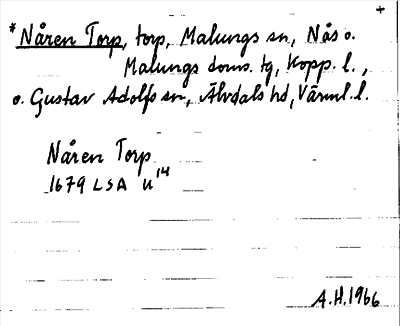 +
*Nåren Torp, torp, Malungs sn, Nås o.
Malungs doms. tg, Kopp. l.,
o. Gustav Adolfs sn, Älvdals hd, Värml. l.
Nåren Torp
1679 LSA U¹⁴
A.H. 1966